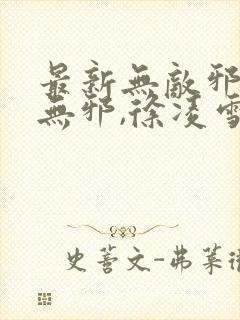 最新無敵邪
無邪,徐凌雪
史蒂文-弗萊